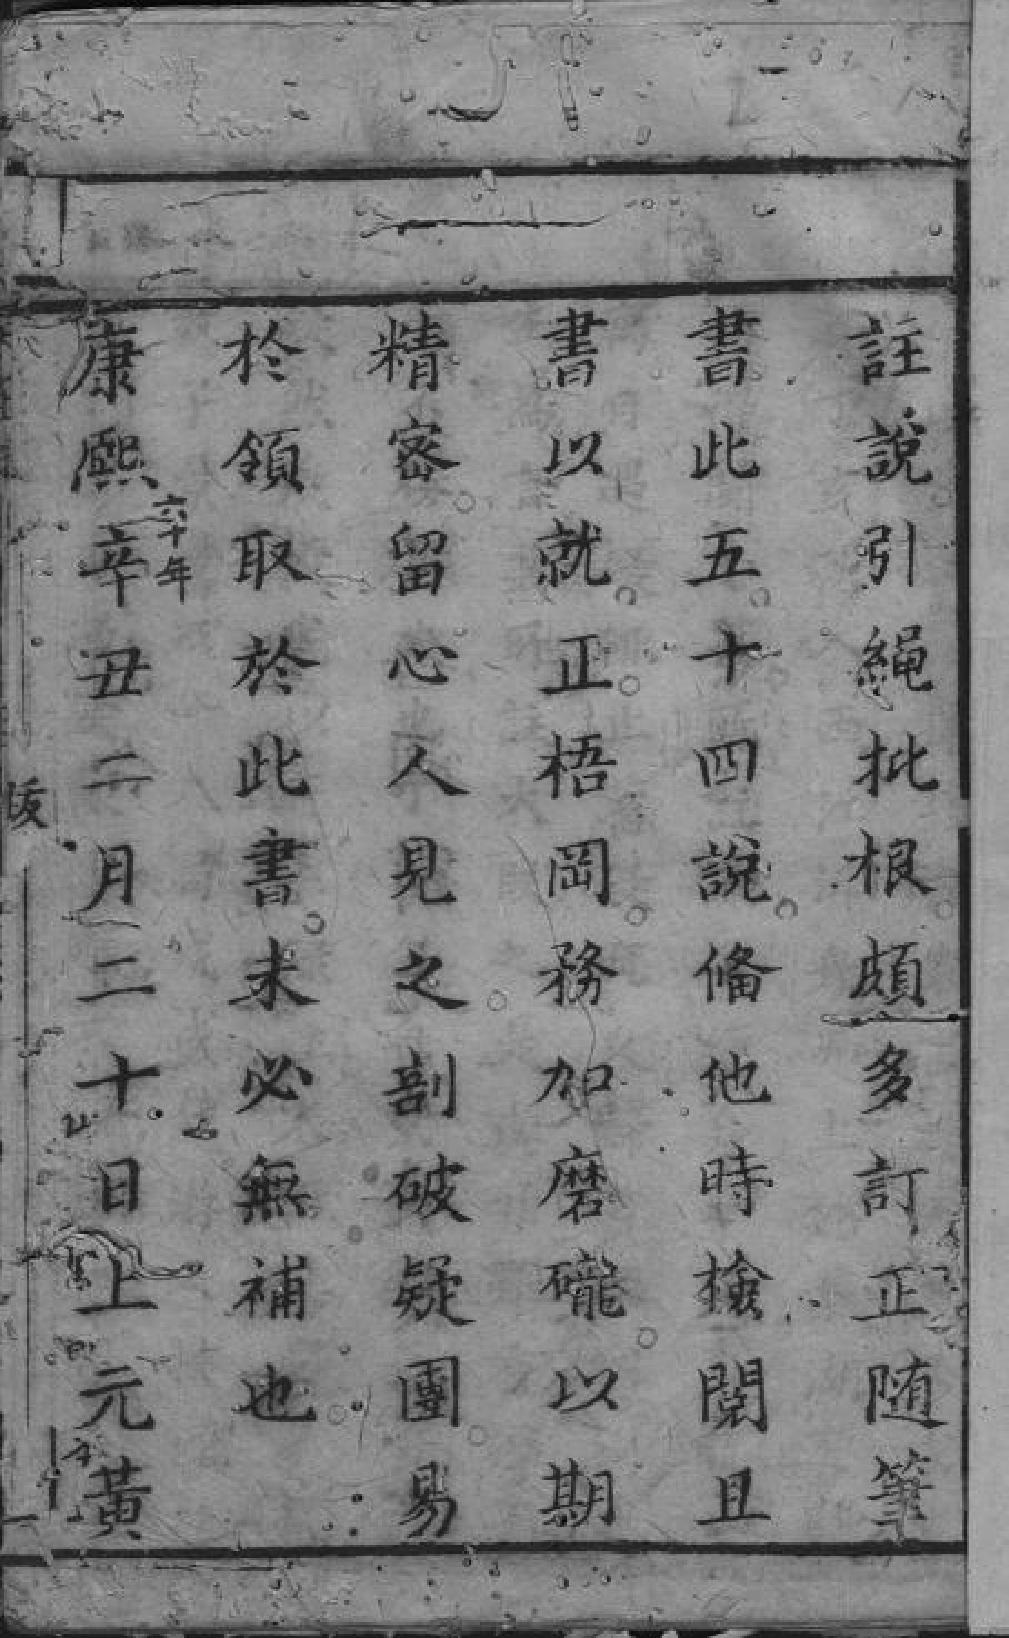 註說引繩批根頗多訂正随筆
書此五十四說俻他時撿閱且
書以就正梧岡務加磨礲以期
精宻留心人見之剖破疑團易
於領取於此書未必無補也
康熙辛丑二月二十日上元黃
六十年